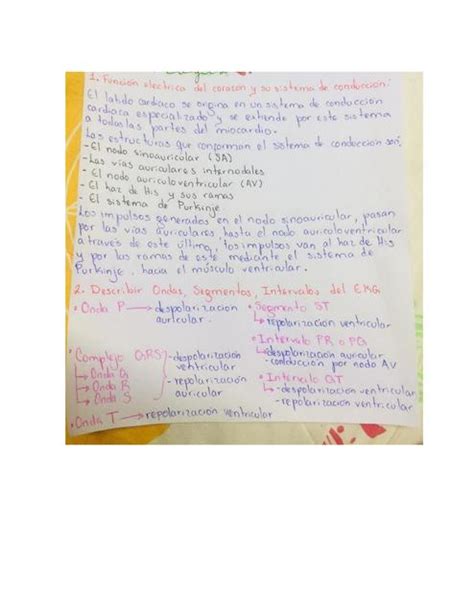 1. Función electrica del corazon y su sistema de conduccion:
El latido cardiaco se origina en un sistema de conduccion
cardiaca especializado y se extiende por este sistema
a todas las partes del miocardio.
Las estructuras que conforman el sistema de conduccion son:
- El nodo sinoauricular (SA)
- Las vias auriculares internodales
- El nodo auriculoventricular (AV)
- El haz de His y sus ramas
- El sistema de Purkinje
Los impulsos generados en el nodo sinoauricular, pasan
por las vias auriculares hasta el nodo auriculoventricular
a través de este último, los impulsos van al haz de His
y por las ramas de este mediante el sistema de
Purkinje, hacia el músculo ventricular.
2. Describir Ondas, Segmentos, Intervalos del EKG
• Onda P → despolarizacion
auricular
• Complejo QRS
↳ Onda Q
↳ Onda R
↳ Onda S
- despolarizacion
ventricular
- repolarizacion
auricular
• Onda T → repolarizacion ventricular
• Segmento ST
↳ repolarizacion ventricular
• Intervalo PR o PQ
↳ despolarizacion auricular
- conducción por nodo AV
• Intervalo QT
↳ - despolarizacion ventricular
- repolarizacion ventricular